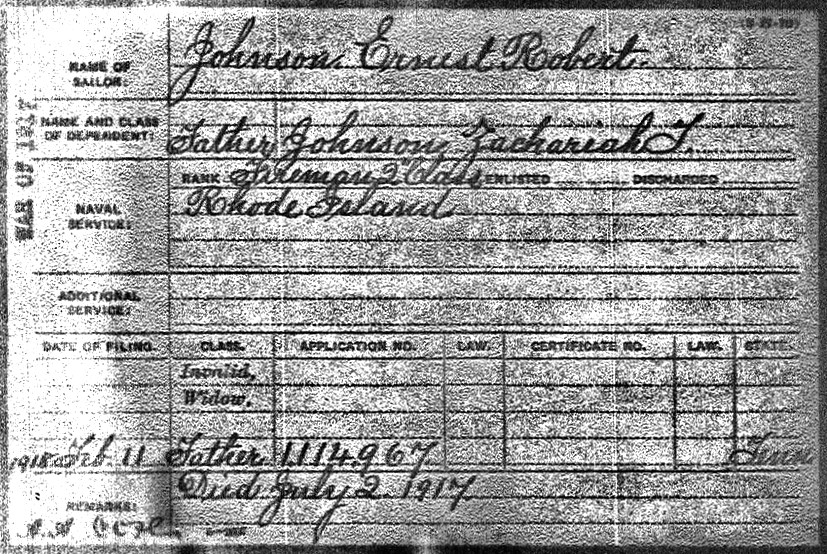 NAME OF SAILOR: Johnson, Ernest Robert
NAME AND CLASS OF DEPENDENT: Father Johnson, Zachariah T.
WAR OF
RANK Fireman 2" Class ENLISTED DISCHARGED
NAVAL SERVICE: Rhode Island
ADDITIONAL SERVICE:
DATE OF FILING. CLASS. APPLICATION NO. LAW. CERTIFICATE NO. LAW. STATE.
Invalid,
Widow,
1918 Feb. 11 Father 1114967 Tenn
Died July 2 1917
REMARKS: